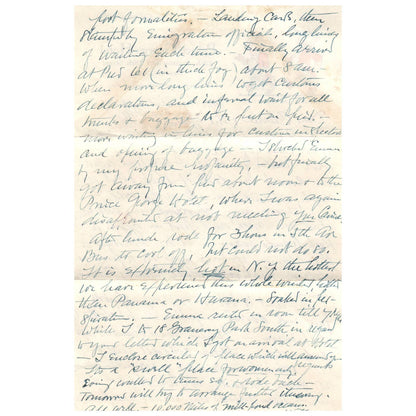 port formalities. - Landing Cards, then
stamped by Emigration officials, long lines
of waiting each time. - Finally arrive
at Pier 60 (in thick fog) about 8 am.
When more long lines to get Customs
declarations, and infernal wait for all
trunks & baggage to be put on pier. -
More waiting in lines for customs inspectors
and opening of baggage - I shocked Emma
by my profane profanity, - but finally
got away from pier about noon & to the
Prince George Hotel, where I was again
disappointed at not meeting you
After lunch, rode for 3 hours in 5th Ave
Bus to cool off, but could not do so.
It is extremely hot in N.Y. the hottest
we have experienced this whole winter, hotter
than Panama or Havana. - Soaked in per-
spiration. - Emma rests in room till
while I to 18 Gramercy Park South in regard
to your letter which I got on arrival at Hotel
- I enclose circular of place which will
Its a "swell" place for women only
Going walked to Times Sq. & rode back -
Tomorrow will try to arrange further itinerary.
All well - 10,000 miles of ocean